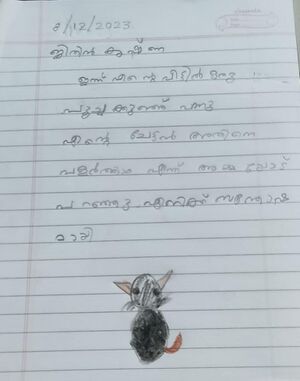 8/12/2023
ജിതിൻ കൃഷ്ണ
ഇന്ന് എന്റെ വീട്ടിൽ ഒരു
പൂച്ച കുഞ്ഞ് വന്നു
എന്റെ ചേട്ടൻ അതിനെ
വളർത്താം എന്ന് അമ്മ യോട്
പറഞ്ഞു എനിക്ക് സന്തോഷ
മായി